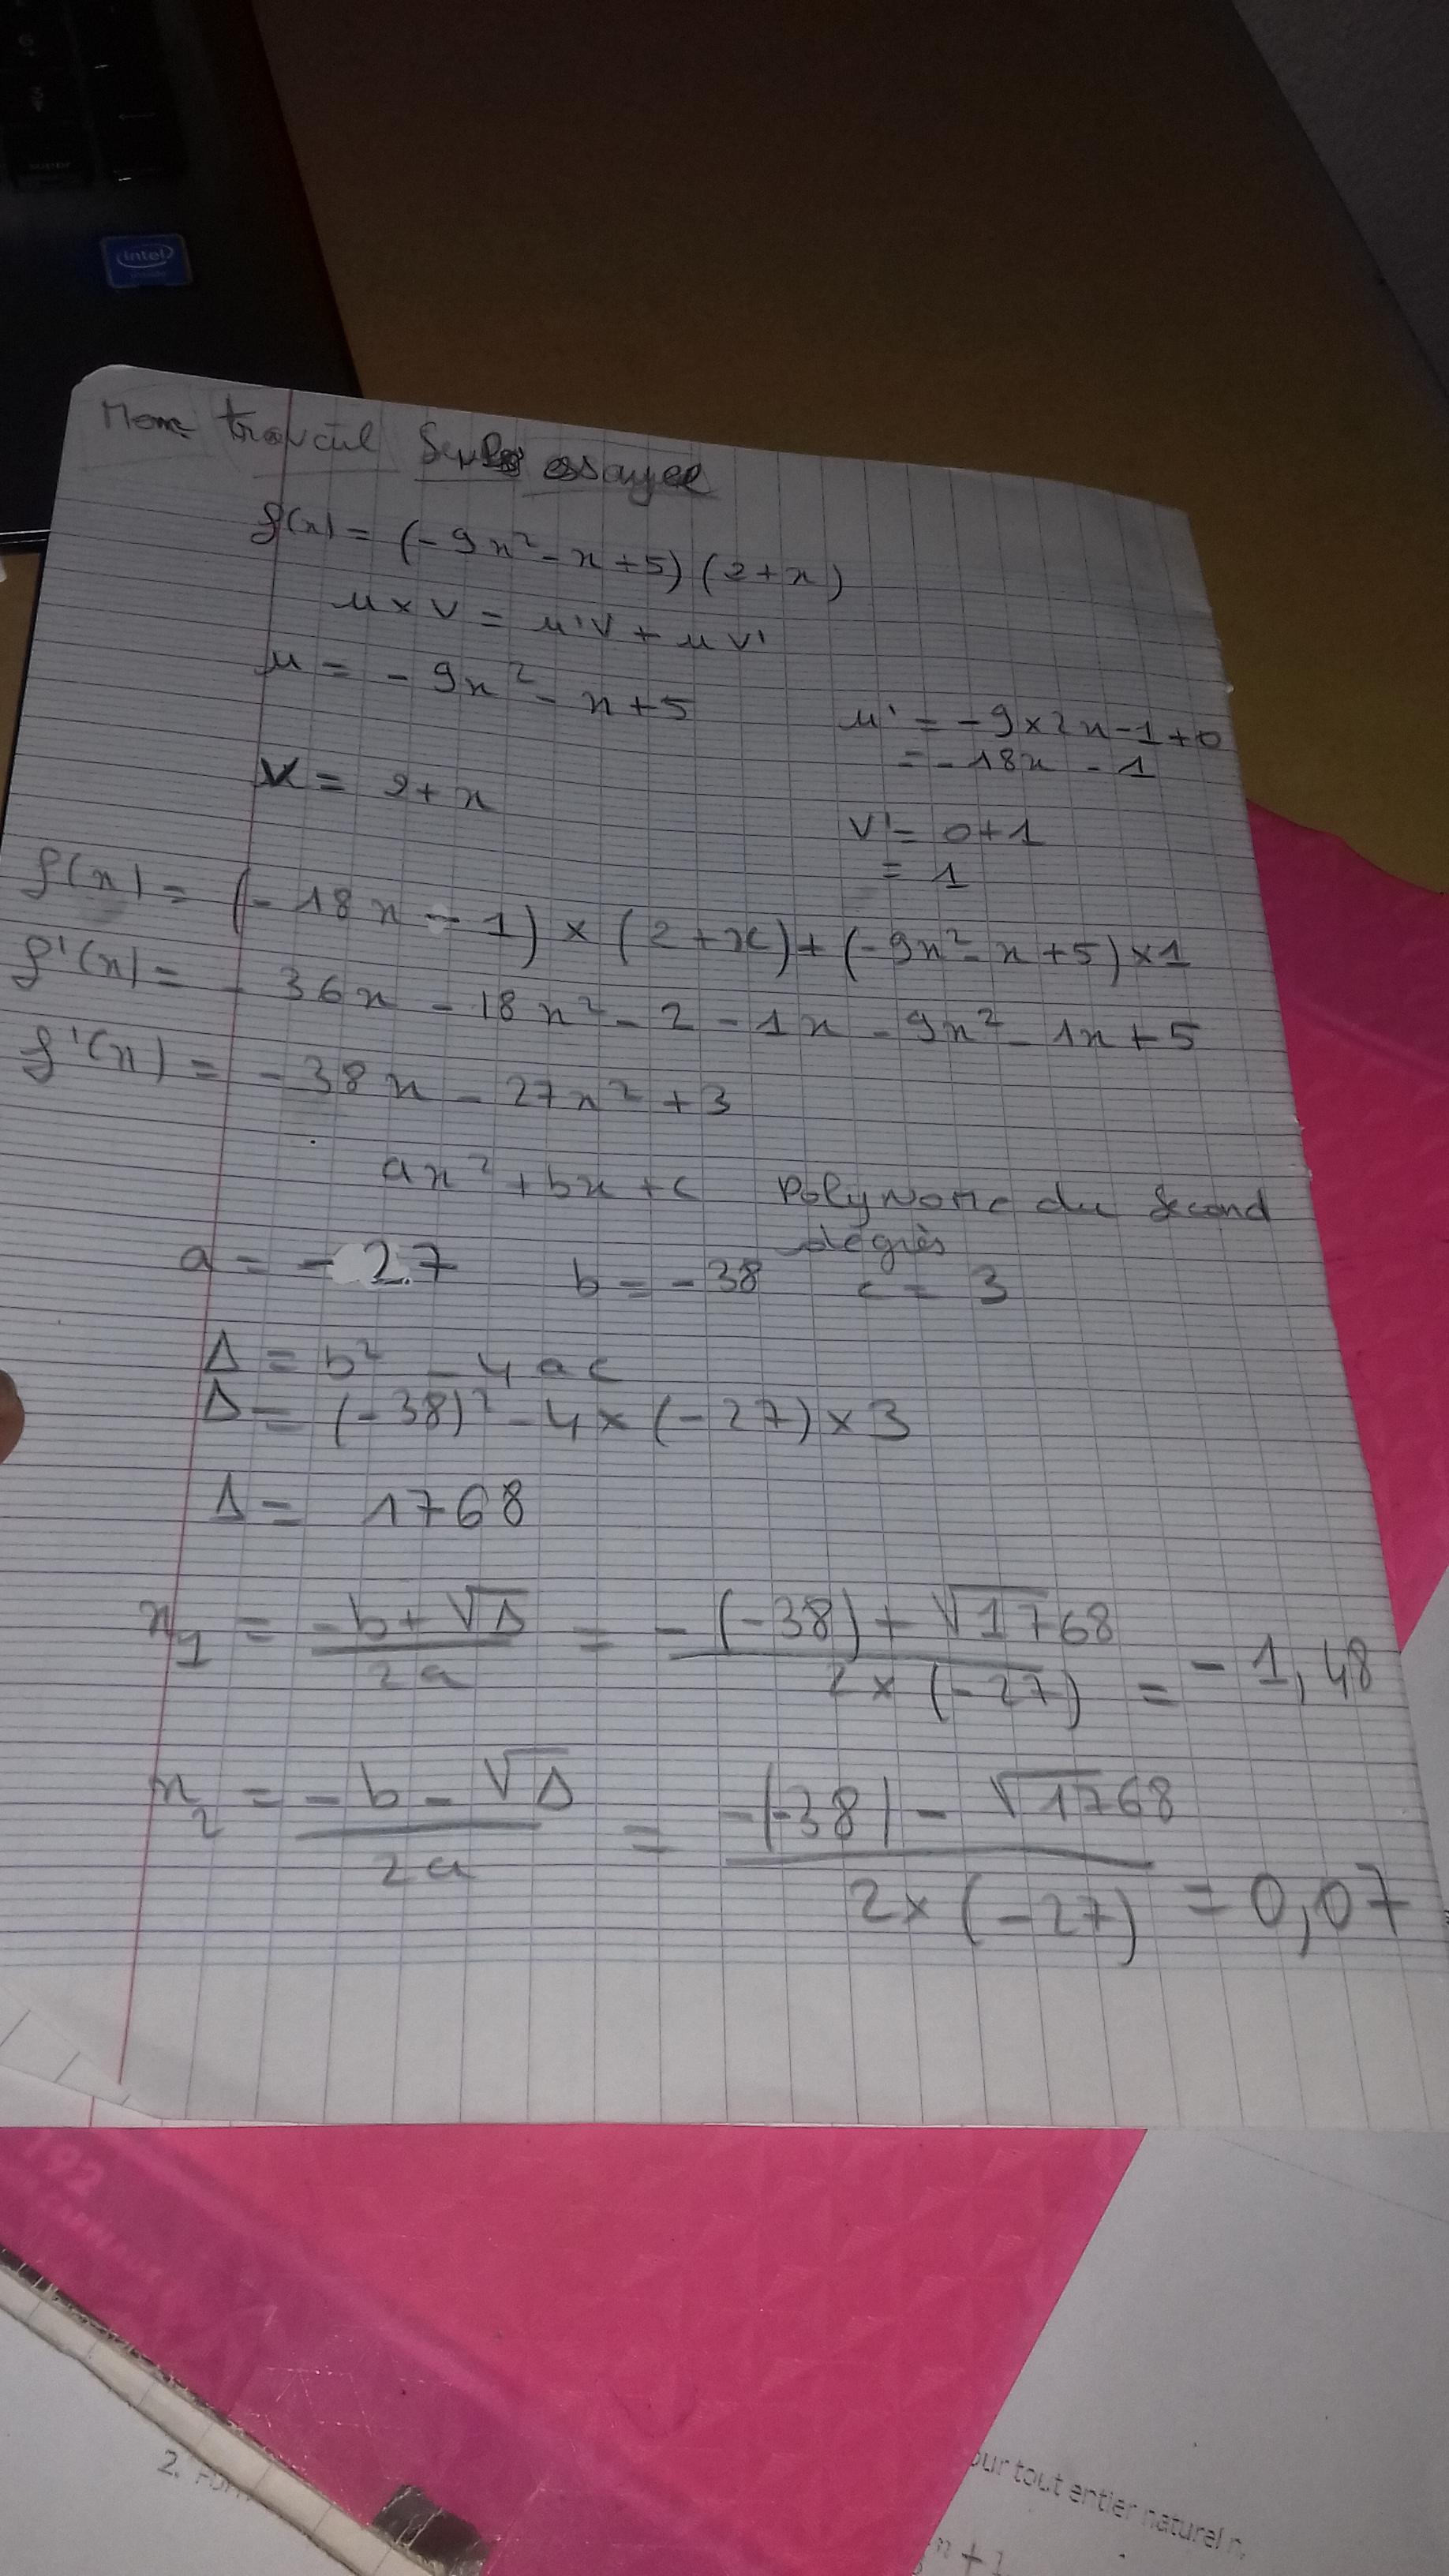 intel
inside
Mon travail Seule essayee
f(x) = (-9x² - x + 5) (2 + x)
u x v = u'v + u v'
u = - 9x² - x + 5
u' = - 9 x 2x - 1 + 0
= - 18x - 1
v = 2 + x
v' = 0 + 1
= 1
f(x) = (- 18x - 1) x (2 + x) + (-9x² - x + 5) x 1
f'(x) = - 36x - 18x² - 2 - 1x - 9x² - 1x + 5
f'(x) = - 38x - 27x² + 3
ax² + bx + c polynome du second
degrès
a = - 27 b = - 38 c = 3
Δ = b² - 4 a c
Δ = (-38)² - 4 x (-27) x 3
Δ = 1768
x₁ = -b + √Δ / 2a = - (-38) + √1768 / 2 x (-27) = - 1,48
x₂ = - b - √Δ / 2a = -(-38) - √1768 / 2 x (-27) = 0,07
192
2.
our tout entier naturel n.
n + 1